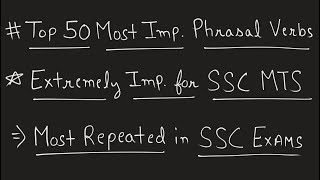 # Top 50 Most Imp. Phrasal Verbs
☆ Extremely Imp. for SSC MTS
⇒ Most Repeated in SSC Exams